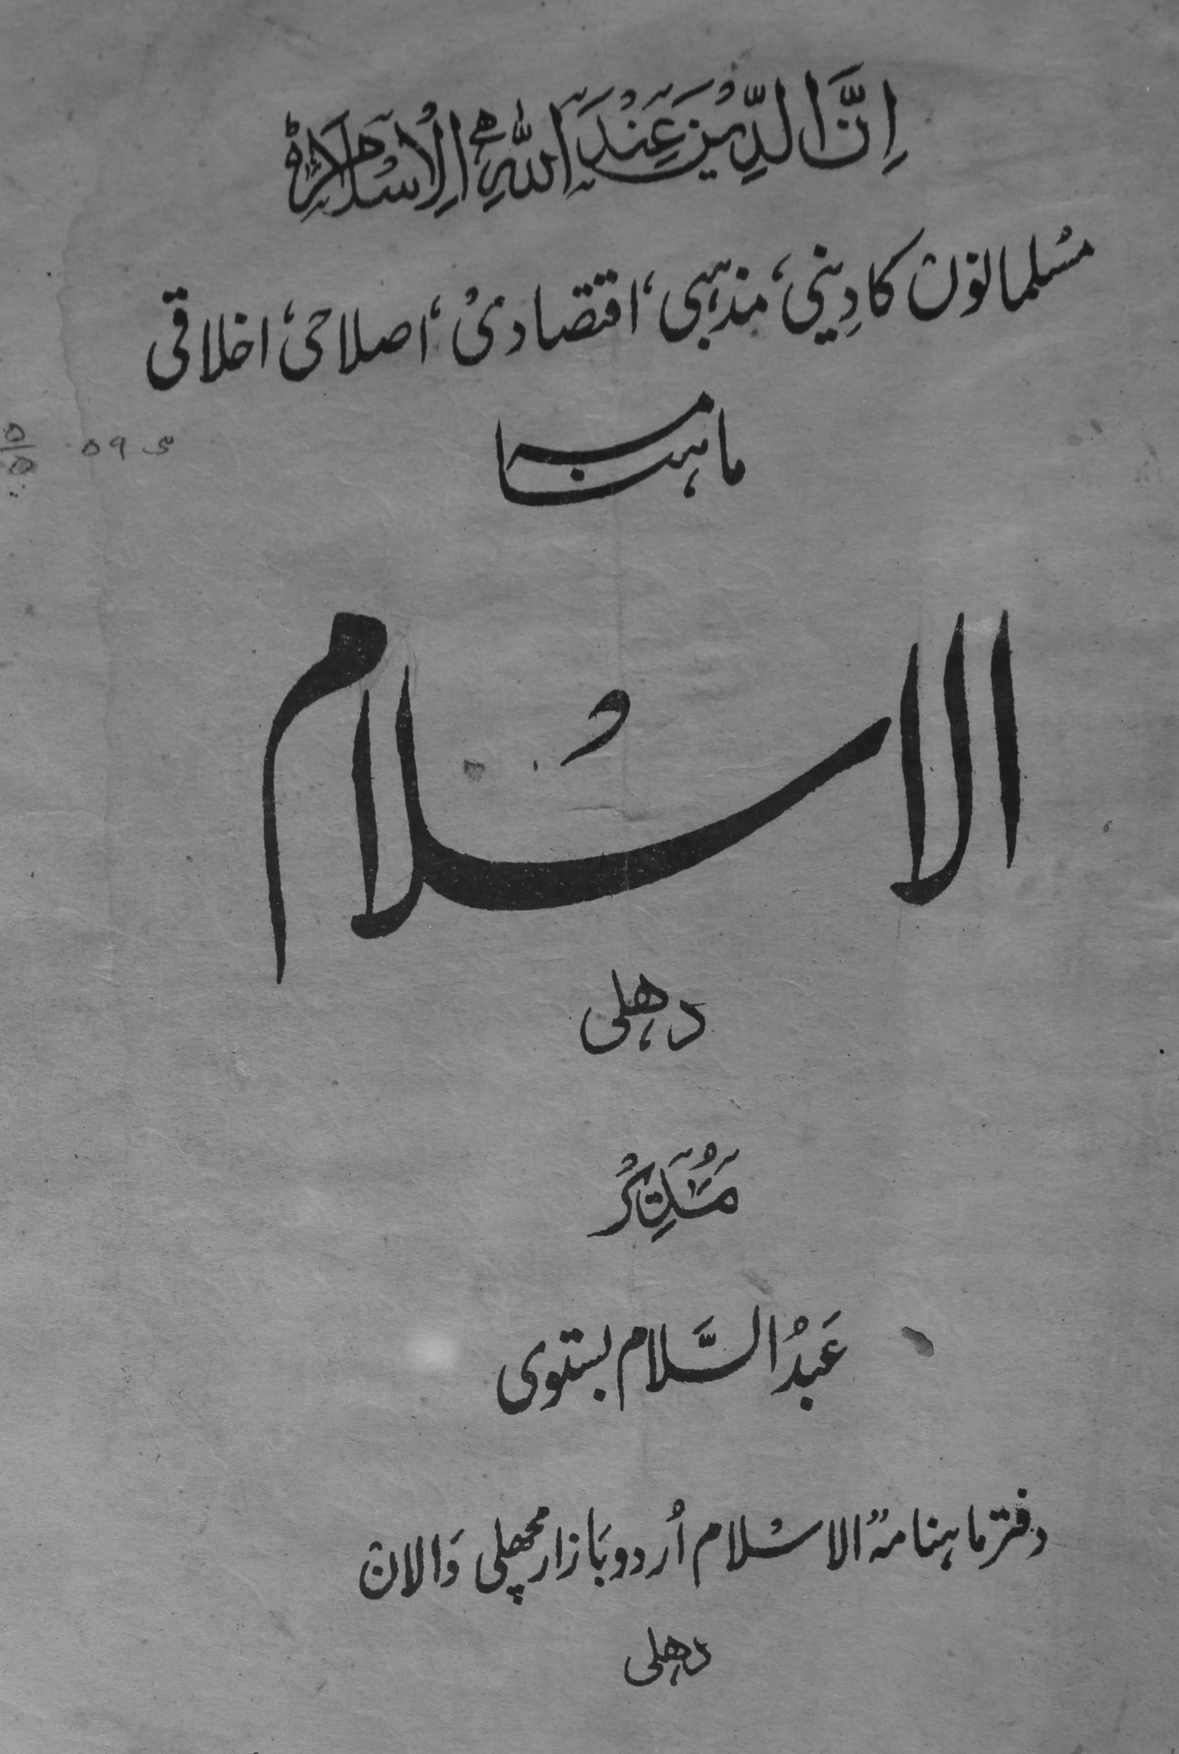 اِنَّ الدِّيْنَ عِنْدَ اللّٰهِ الْاِسْلَامُ
مسلمانوں کا دینی، مذہبی، اقتصادی، اصلاحی، اخلاقی
ماہنامہ
الاسلام
دھلی
مُدِیْر
عَبدُ السَّلام بستوی
دفتر ماہنامہ الاسلام اُردو بازار مچھلی والان
دھلی